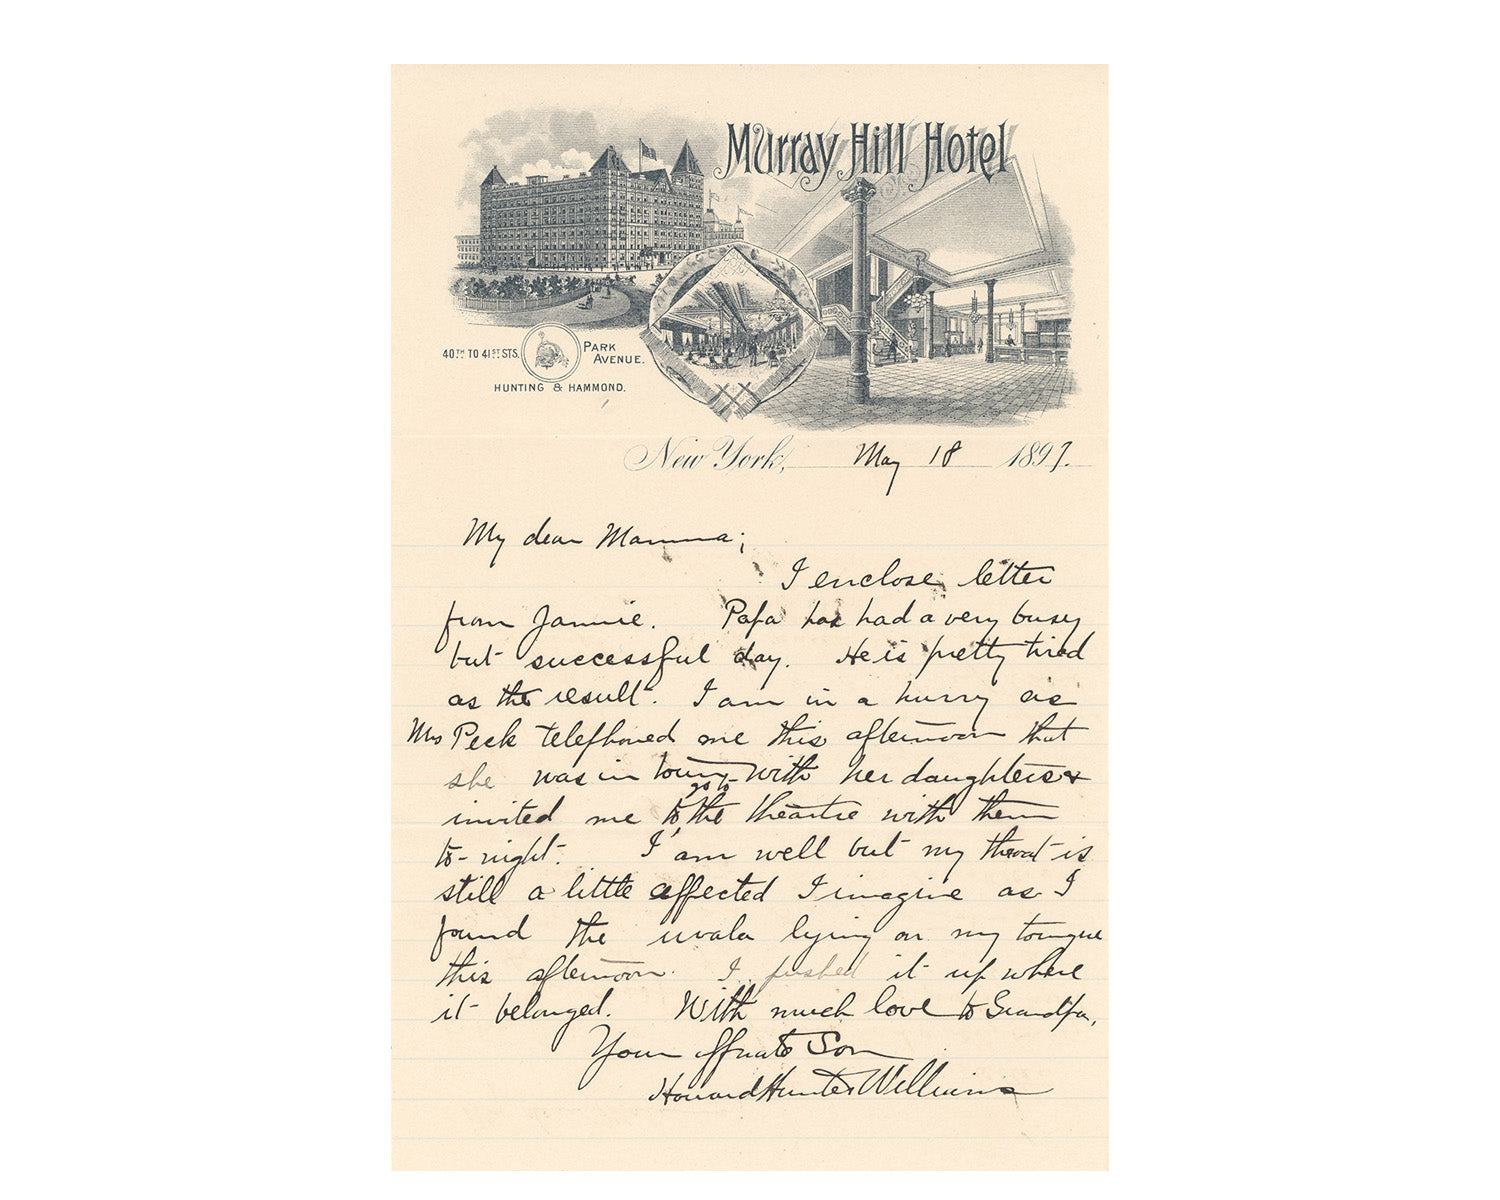 Murray Hill Hotel
40TH TO 41ST STS.
PARK
AVENUE.
HUNTING & HAMMOND.
New York, May 18 1897.
My dear Mamma;
I enclose letter
from Jamie. Papa has had a very busy
but successful day. He is pretty tired
as the result. I am in a hurry as
Mrs Peck telephoned me this afternoon that
she was in town with her daughters &
go to
invited me to the theatre with them
to-night. I am well but my throat is
still a little affected I imagine as I
found the uvala lying on my tongue
this afternoon. I pushed it up where
it belonged. With much love to Grandpa,
Your affnate Son
Howard Hunter Williams